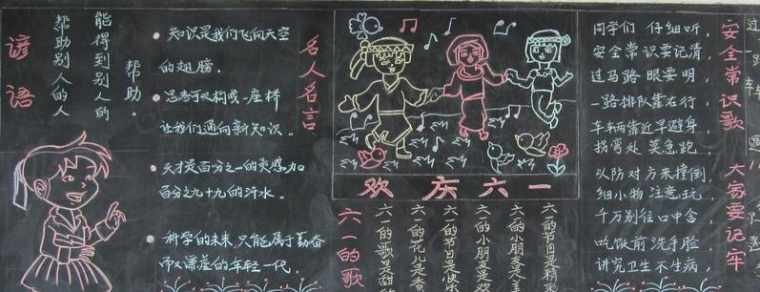 谚语
帮助别人的人
能得到别人的
帮助。
名人名言
知识是我们飞向天空
的翅膀。
思考可以构成一座桥
让我们通向新知识。
天才是百分之一的灵感加
百分之九十九的汗水。
科学的未来只能属于勤奋
而又谦虚的年轻一代。
欢庆六一
六一的歌
六一的歌是甜
六一的花儿是香
六一的节日是快
六一的小朋是欢
六一的小朋是美
六一的节日是精
安全常识歌 大家要记牢
同学们 仔细听，
安全常识要记清，
过马路 眼要明，
一路排队靠右行，
车辆靠近早避身，
拐弯处 莫急跑，
以防对方来撞倒，
细小物 注意玩，
千万别往口中含，
吃饭前 洗手脸，
讲究卫生不生病，